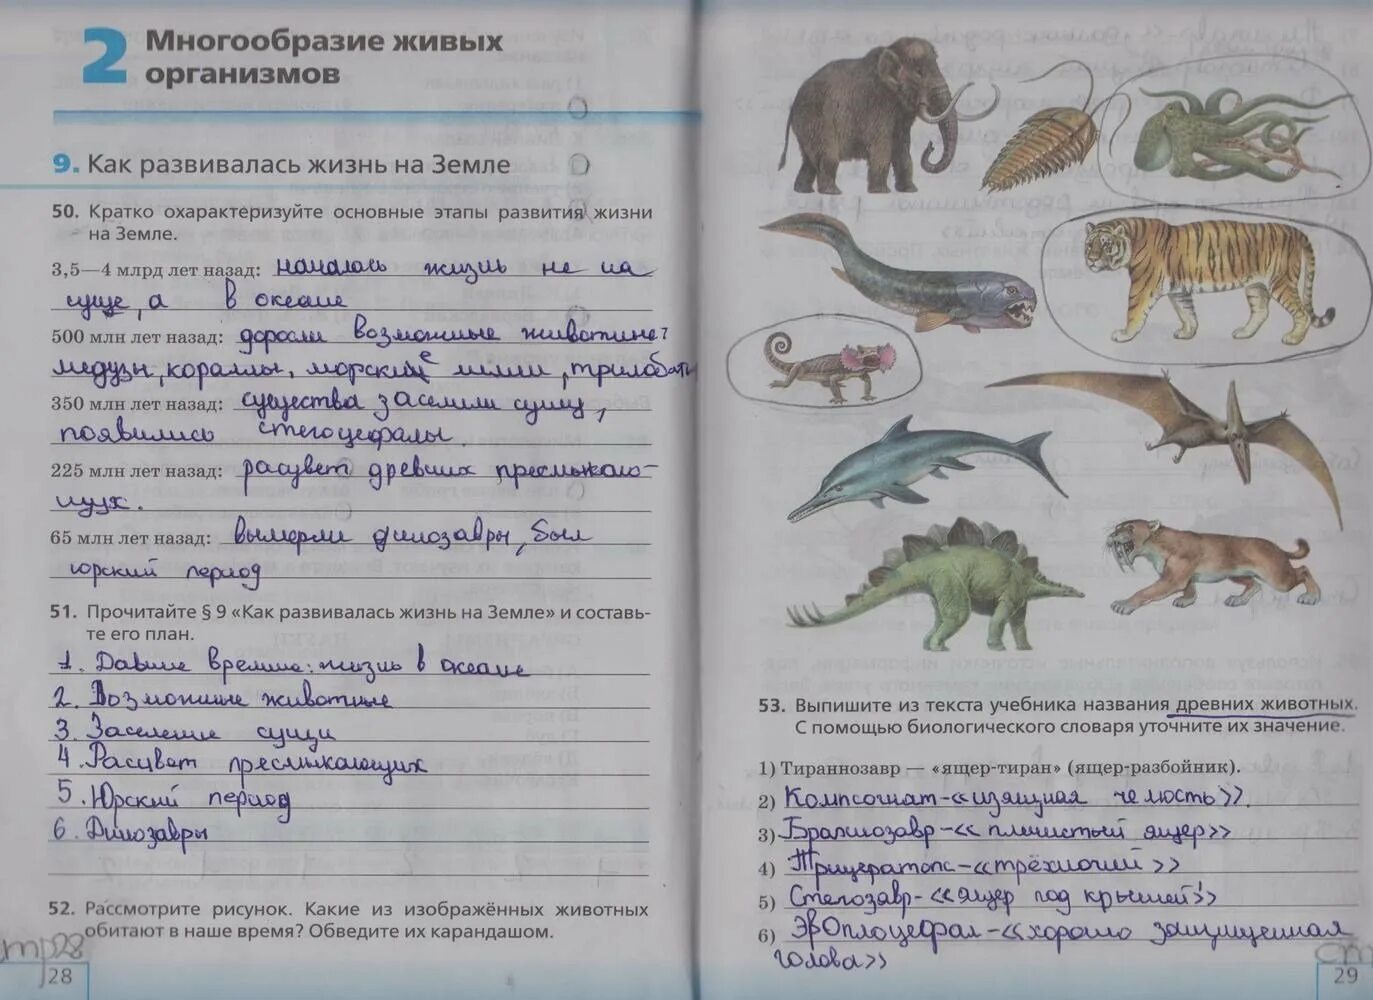 2 Многообразие живых
организмов
9. Как развивалась жизнь на Земле
50. Кратко охарактеризуйте основные этапы развития жизни
на Земле.
3,5—4 млрд лет назад: началась жизнь не на
суще, а в океане
500 млн лет назад: возможные животные
медузы, кораллы, морские трилобаты
350 млн лет назад: существа заселили сушу,
появились стегоцефалы.
225 млн лет назад: расцвет древних пресмыкаю-
щих.
65 млн лет назад: вымерли динозавры, был
юрский период
51. Прочитайте § 9 «Как развивалась жизнь на Земле» и составь-
те его план.
1. Давние времена: жизнь в океане
2. Возможные животные
3. Заселение сущи
4. Расцвет пресмыкающих
5. Юрский период
6. Динозавры
52. Рассмотрите рисунок. Какие из изображённых животных
обитают в наше время? Обведите их карандашом.
стр28
28
53. Выпишите из текста учебника названия древних животных.
С помощью биологического словаря уточните их значение.
1) Тираннозавр — «ящер-тиран» (ящер-разбойник).
2) Компсогнат-«изящная челюсть».
3) Брахиозавр-«плечистый ящер»
4) Трицератопс-«трёхрогий»
5) Стегозавр-«ящер под крышей»
6) Эвоплоцефал-«хорошо защищенная
голова»
ст
29